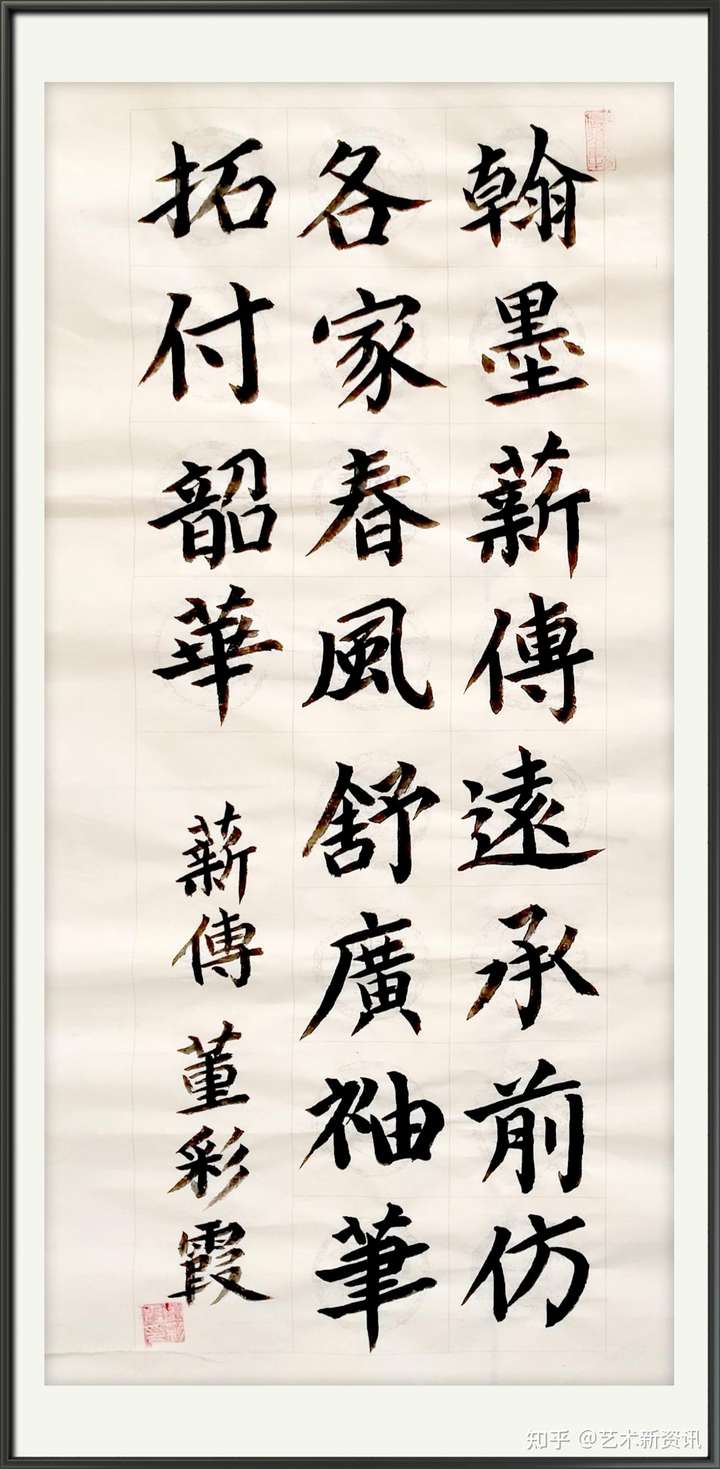 翰墨薪傳遠承前仿
各家春風舒廣袖筆
拓付韶華
薪傳 董彩霞
知乎 @艺术新资讯